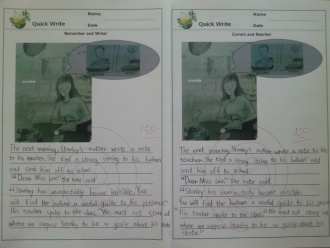 Name
Quick Write
Date
Remember and Write!
The next morning, Stanley's mother wrote a note
to his teacher. She tied a strong string to his button
and sent him off to school.
"Dear Miss
the note said.
"Stanley has unexpectedly become invisible. You
will find the button a useful guide to his presence."
His teacher spoke to the class. "We must not stare at
where we suppose Stanley to be or gossip about his state
Name
Quick Write
Date
Correct and Rewrite!
The next morning, Stanley's mother wrote a note
to his teacher. She tied a strong string to his button
and sent him off to school.
"Dear Miss
the note said.
"Stanley has unexpectedly become invisible.
You will find the button a useful guide to his presence."
His teacher spoke to the class. "We must not stare at
where we suppose Stanley to be or gossip about his